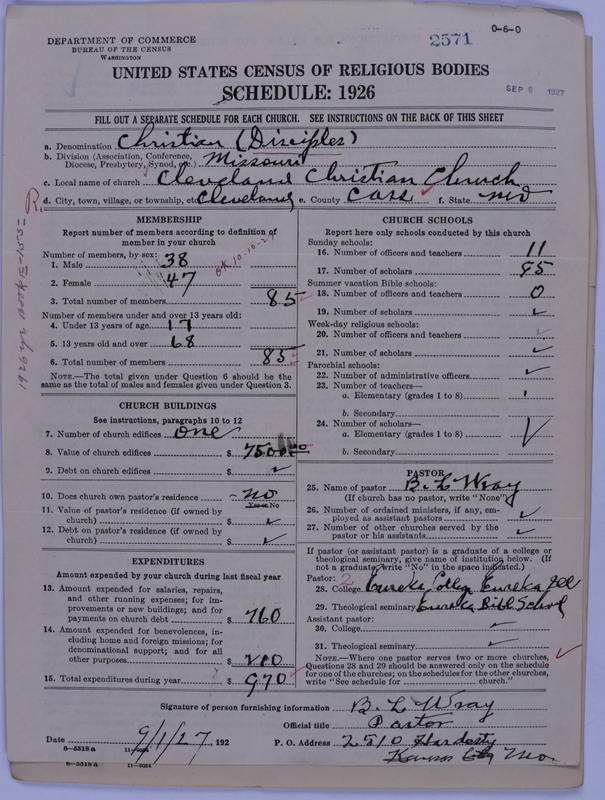 0-6-0
DEPARTMENT OF COMMERCE
BUREAU OF THE CENSUS
WASHINGTON
2571
UNITED STATES CENSUS OF RELIGIOUS BODIES
SCHEDULE: 1926
SEP 6 1927
FILL OUT A SEPARATE SCHEDULE FOR EACH CHURCH. SEE INSTRUCTIONS ON THE BACK OF THIS SHEET
a. Denomination Christian (Disciples)
b. Division (Association, Conference, Diocese, Presbytery, Synod, etc.) Missouri
c. Local name of church Cleveland Christian Church
R. d. City, town, village, or township, etc. Cleveland e. County Cass f. State Mo
MEMBERSHIP
Report number of members according to definition of
member in your church
Number of members, by sex:
1. Male 38
OK 10-10-27
2. Female 47
3. Total number of members 85
Number of members under and over 13 years old:
4. Under 13 years of age 17
5. 13 years old and over 68
6. Total number of members 85
NOTE.—The total given under Question 6 should be the
same as the total of males and females given under Question 3.
CHURCH BUILDINGS
See instructions, paragraphs 10 to 12
7. Number of church edifices one
8. Value of church edifices $ 7500.00
9. Debt on church edifices $ ✓
10. Does church own pastor's residence - no
Yes or No
11. Value of pastor's residence (if owned by
church) $ ✓
12. Debt on pastor's residence (if owned by
church) $ ✓
EXPENDITURES
Amount expended by your church during last fiscal year
13. Amount expended for salaries, repairs,
and other running expenses; for im-
provements or new buildings; and for
payments on church debt $ 760
14. Amount expended for benevolences, in-
cluding home and foreign missions; for
denominational support; and for all
other purposes $ 210
15. Total expenditures during year $ 970
CHURCH SCHOOLS
Report here only schools conducted by this church
Sunday schools:
16. Number of officers and teachers 11
17. Number of scholars
Summer vacation Bible schools:
18. Number of officers and teachers 0
19. Number of scholars ✓
Week-day religious schools:
20. Number of officers and teachers ✓
21. Number of scholars ✓
Parochial schools:
22. Number of administrative officers ✓
23. Number of teachers—
a. Elementary (grades 1 to 8)
b. Secondary
24. Number of scholars—
a. Elementary (grades 1 to 8) ✓
b. Secondary
PASTOR
25. Name of pastor B. L. Wray
(If church has no pastor, write "None")
26. Number of ordained ministers, if any, em-
ployed as assistant pastors ✓
27. Number of other churches served by the
pastor or his assistants ✓
If pastor (or assistant pastor) is a graduate of a college or
theological seminary, give name of institution below. (If
not a graduate, write "No" in the space indicated.)
Pastor: 2
28. College Eureka College Eureka Ill
29. Theological seminary Eureka Bible School
Assistant pastor:
30. College ✓
31. Theological seminary ✓
NOTE.—Where one pastor serves two or more churches,
Questions 28 and 29 should be answered only on the schedule
for one of the churches; on the schedules for the other churches,
write "See schedule for church."
Signature of person furnishing information B. L. Wray
Official title Pastor
Date 9/1/27, 192 P. O. Address 2510 Hardesty
Kansas City Mo
8-5518 a 11-9054
8-5518 a 11-9054